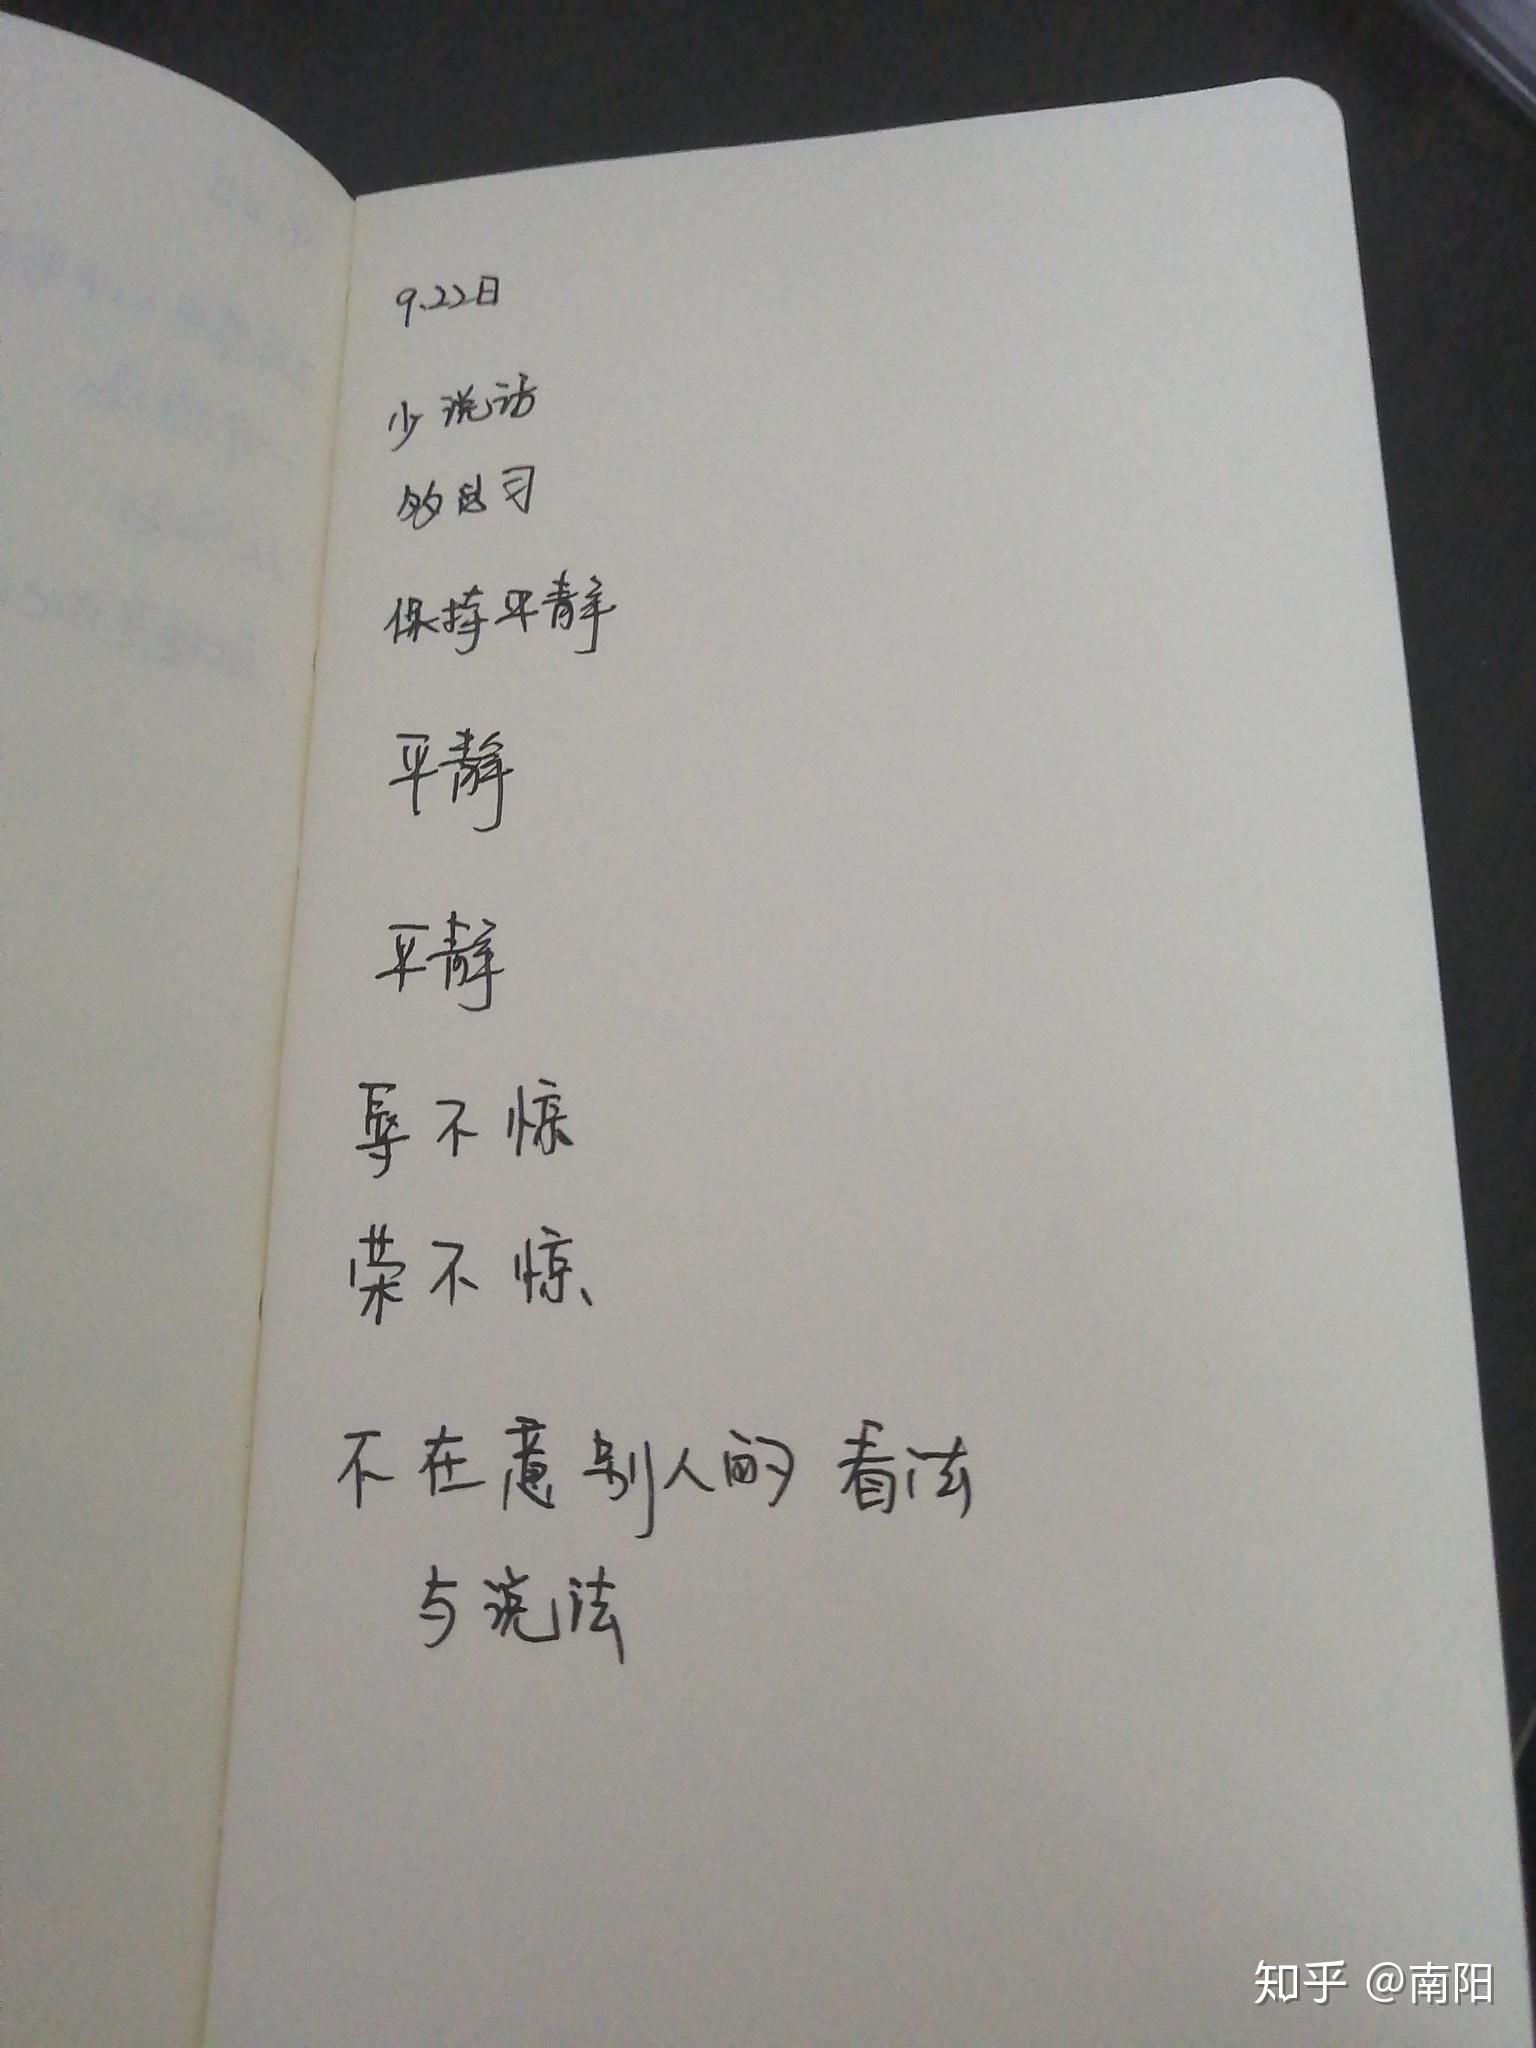 9.22日
少说话
多学习
保持平静
平静
平静
辱不惊
荣不惊、
不在意别人的看法
与说法
知乎 @南阳